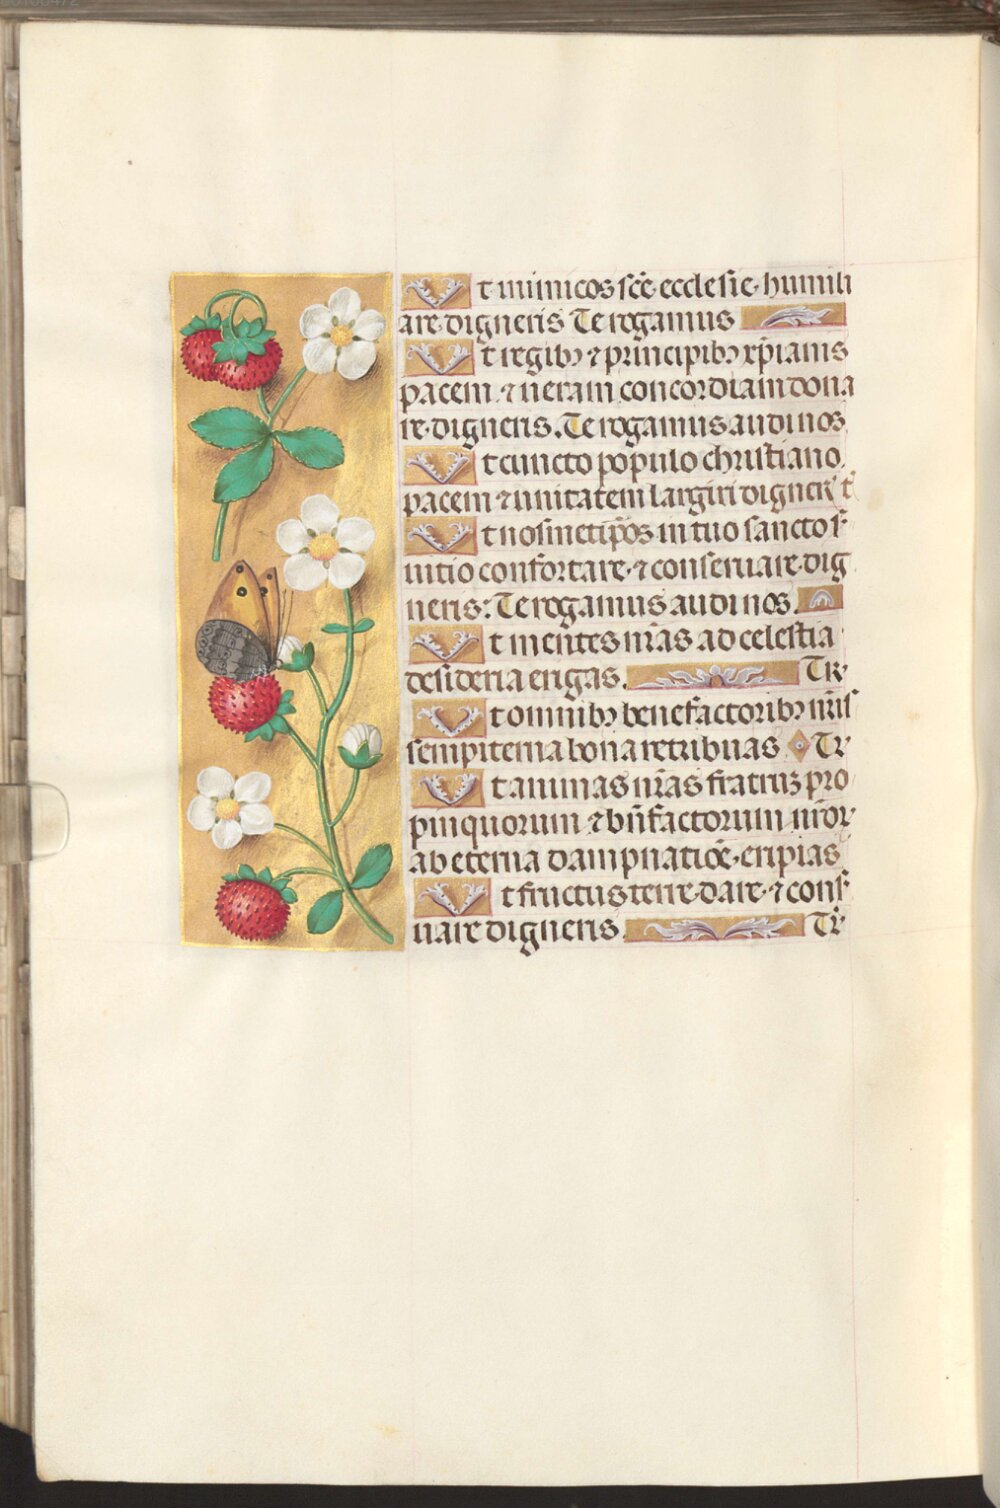 Vt inimicos scē ecclesie· humili
are· digneris Te rogamus
Vt regibꝫ ⁊ principibꝫ xp̄ianis
pacem ⁊ ueram concordiam dona
re· digneris. Te rogamus audi nos
Vt cuncto populo christiano
pacem ⁊ unitatem largiri digner̄ t̄
Vt nosmetip̄os in tuo sancto s̄
uitio confortare· ⁊ conseruare· dig
neris: Te rogamus audi nos.
Vt mentes nr̄as ad celestia
desideria erigas. Tr̄
Vt omnibꝫ benefactoribꝫ nr̄is
sempiterna bona retribuas Tr̄
Vt animas nr̄as fratruꝫ pro
pinquorum ⁊ bn̄factorum nr̄or̄
ab eterna dampnatiōe· eripias
Vt fructus terre· dare· ⁊ cons̄
uare digneris. Tr̄